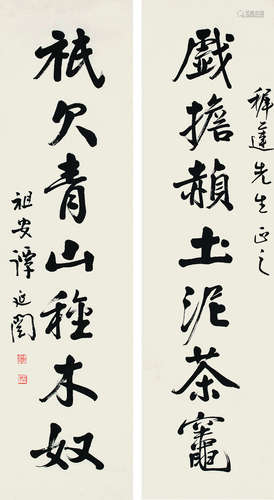 先生正之
戲擔赬土泥茶竈
祇欠青山種木奴
祖安譚延闓